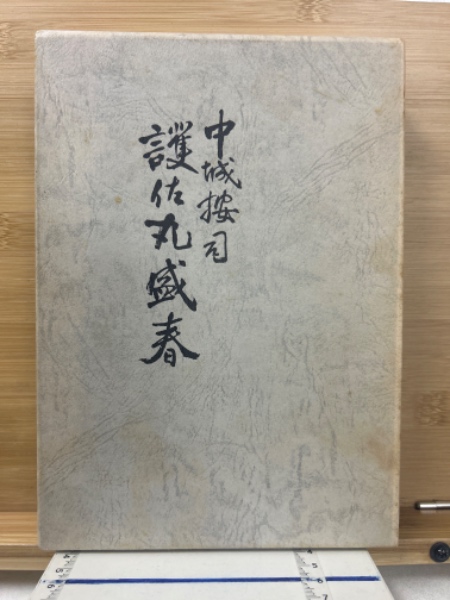 中城按司
護佐丸盛春